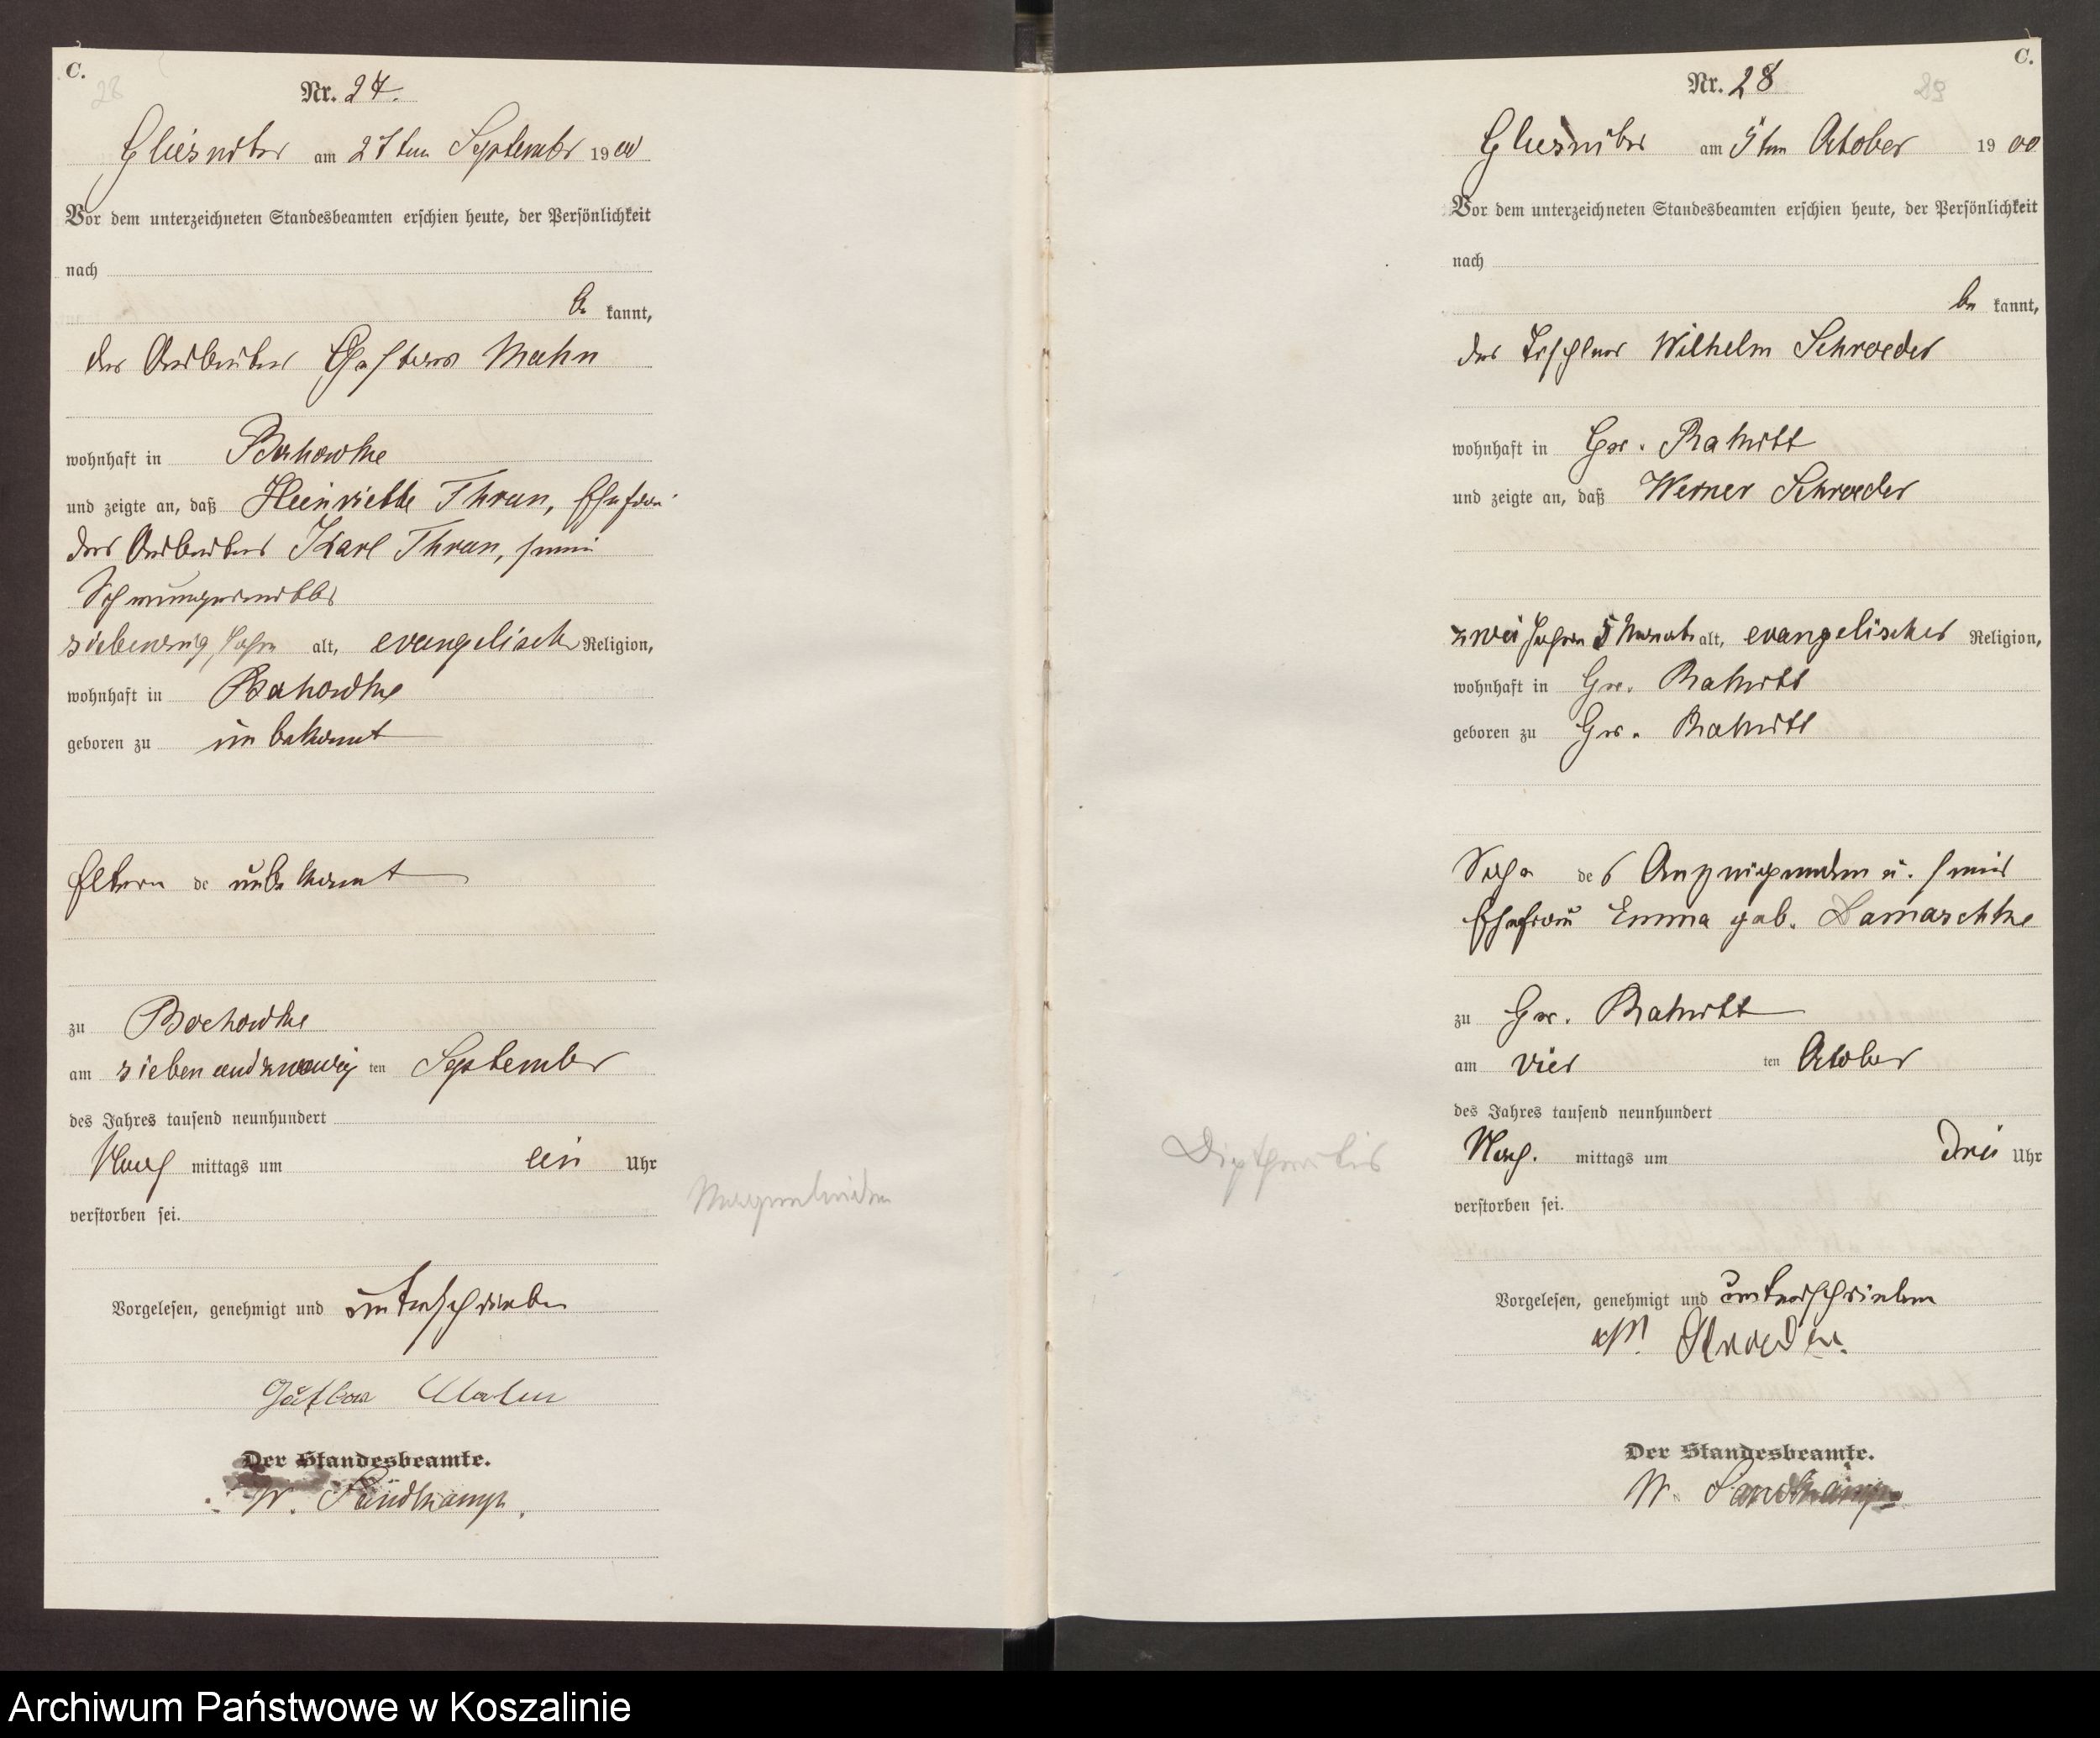 C.
28
Nr. 27.
Gliesnitz am 27ten September 1900
Vor dem unterzeichneten Standesbeamten erschien heute, der Persönlichkeit
nach
be kannt,
der Arbeiter Gustav Mahn
wohnhaft in Bochowke
und zeigte an, daß Heinriette Thran, Ehefrau
des Arbeiters Karl Thran, seine
Schwiegermutter
siebenzig Jahre alt, evangelisch Religion,
wohnhaft in Bochowke
geboren zu unbekannt
Eltern de unbekannt
zu Bochowke
am siebenundzwanzig ten September
des Jahres tausend neunhundert
Nach mittags um ein Uhr
verstorben sei.
Magenleiden
Vorgelesen, genehmigt und unterschrieben
Gustav Mahn
Der Standesbeamte.
W. Sandkamp.
C.
29
Nr. 28
Gliesnitz am 5ten October 1900
Vor dem unterzeichneten Standesbeamten erschien heute, der Persönlichkeit
nach
be kannt,
der Tischler Wilhelm Schroeder
wohnhaft in Gr. Rakitt
und zeigte an, daß Werner Schroeder
zwei Jahre 5 Monate alt, evangelischer Religion,
wohnhaft in Gr. Rakitt
geboren zu Gr. Rakitt
Sohn des Anzeigenden u. seiner
Ehefrau Emma geb. Damaschke
zu Gr. Rakitt
am vier ten October
des Jahres tausend neunhundert
Nach. mittags um drei Uhr
verstorben sei.
Diptheritis
Vorgelesen, genehmigt und unterschrieben
W. Schroeder.
Der Standesbeamte.
W. Sandkamp
Archiwum Państwowe w Koszalinie